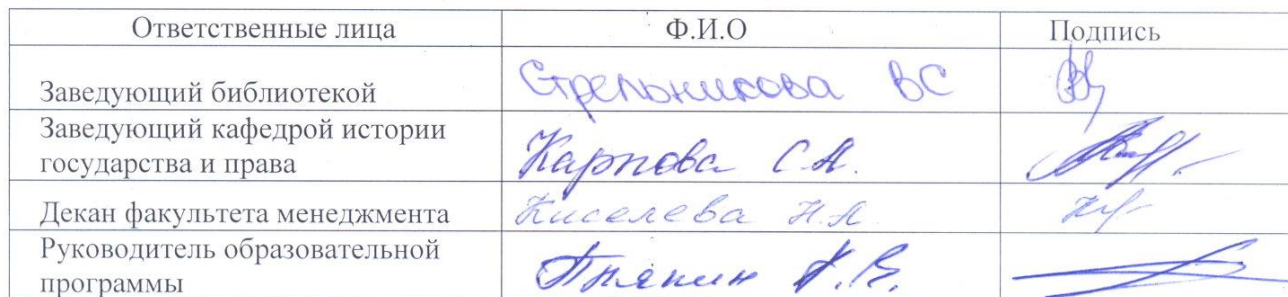 Ответственные лица Ф.И.О Подпись
Заведующий библиотекой Стрельникова ВС
Заведующий кафедрой истории
государства и права Карпова С.А.
Декан факультета менеджмента Киселева Н.А.
Руководитель образовательной
программы